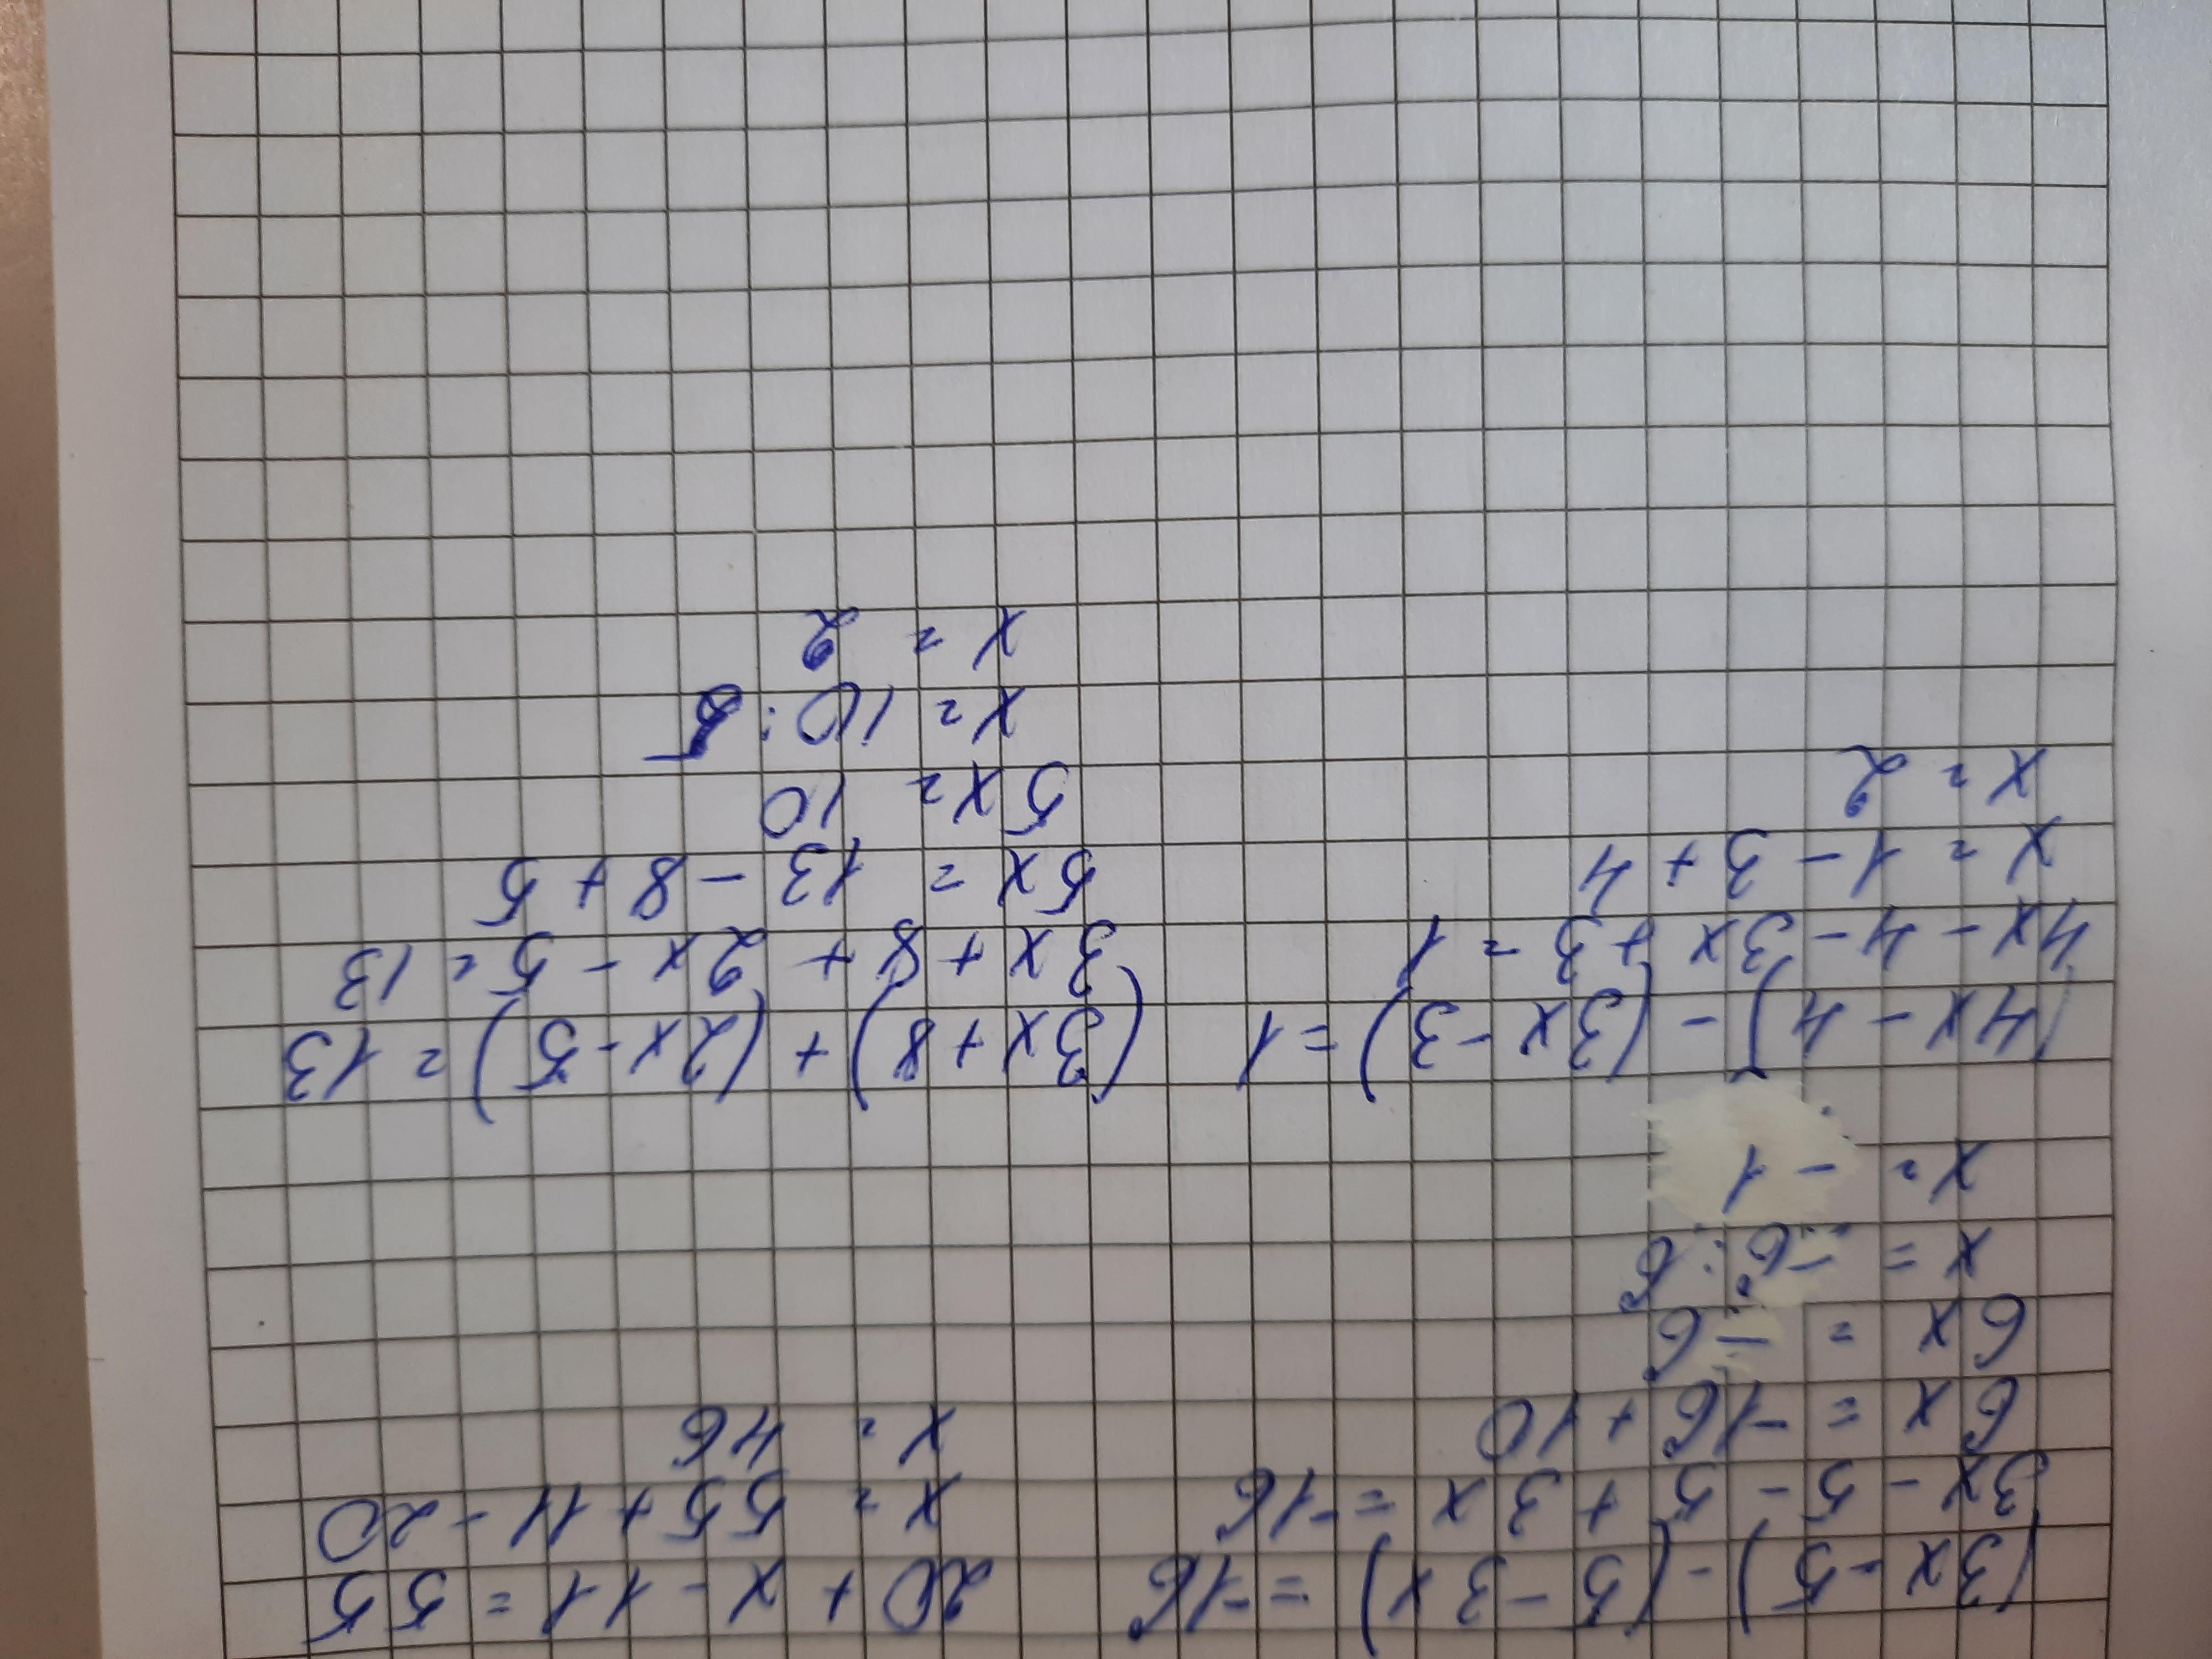 (3x-5)-(5-3x)=-16
3x-5-5+3x=-16
6x=-16+10
6x=-6
x=-6:6
x=-1
20+x-11=55
x=55+11-20
x=46
(4x-4)-(3x-3)=1
4x-4-3x+3=1
x=1-3+4
x=2
(3x+8)+(2x-5)=13
3x+8+2x-5=13
5x=13-8+5
5x=10
x=10:5
x=2